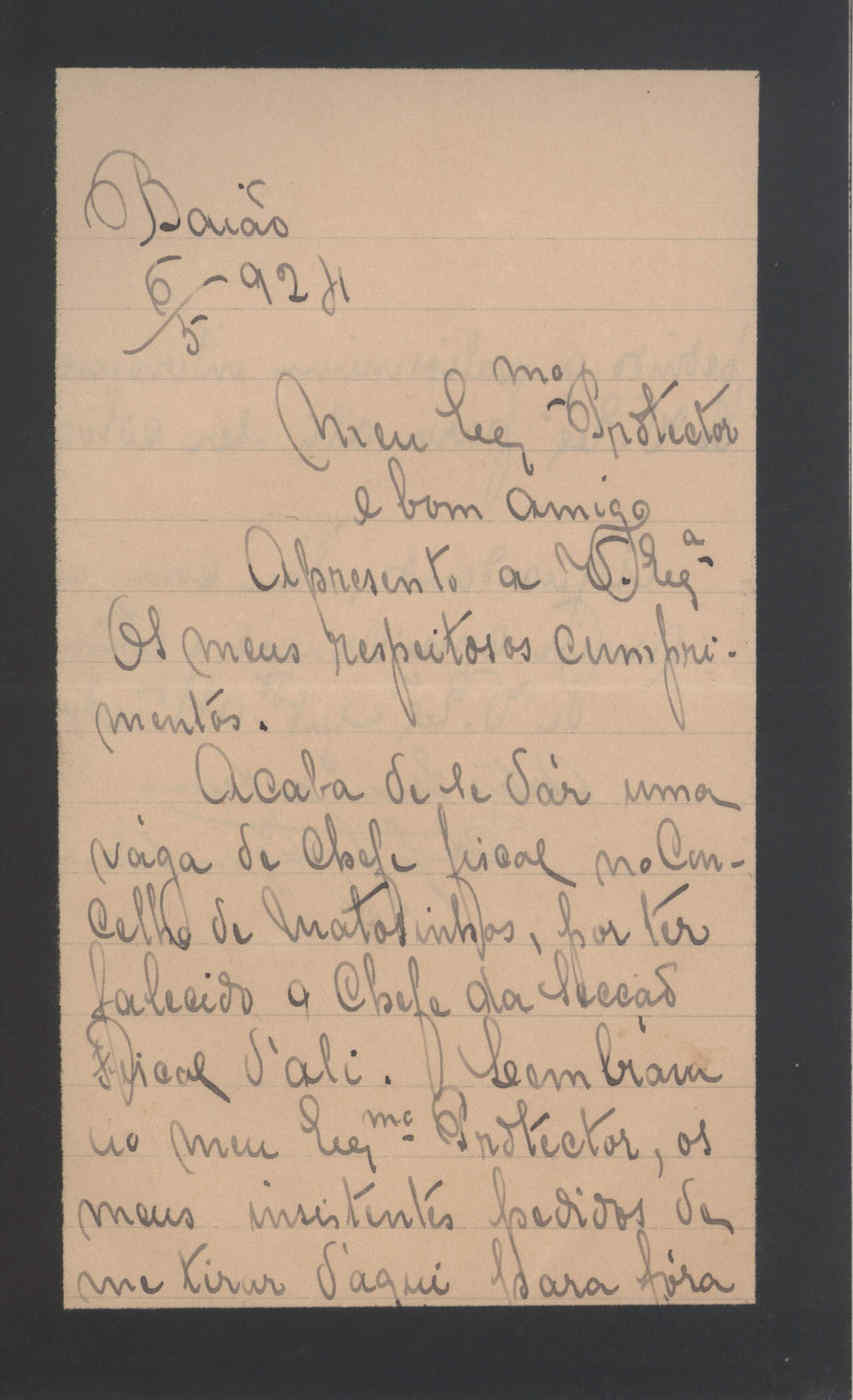 Baião
6/5-924
Meu Exmo Protector
e bom amigo
Apresento a V. Exª
Os meus respeitosos cumpri-
mentos.
Acaba de se dár uma
vága de Chefe fiscal no Con-
celho de Matosinhos, por ter
falecido o Chefe da Secção
Fiscal d'ali.
ao meu Exmo Protector, os
meus insistentes pedidos de
me tirar d'aqui para fóra